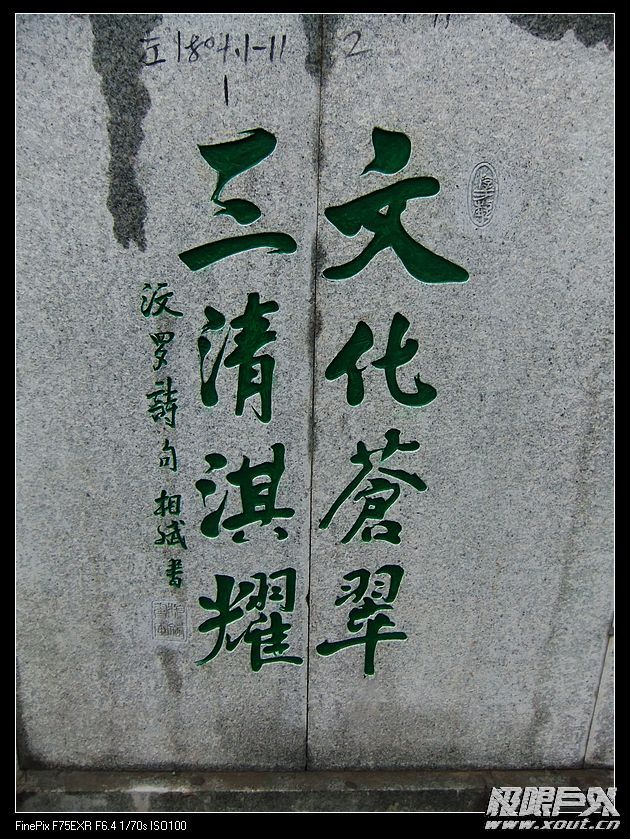 1804.1-11
1
2
文化蒼翠
三清淇耀
罗詩句 相斌書
FinePix F75EXR F6.4 1/70s ISO100
极限户外
www.xout.cn